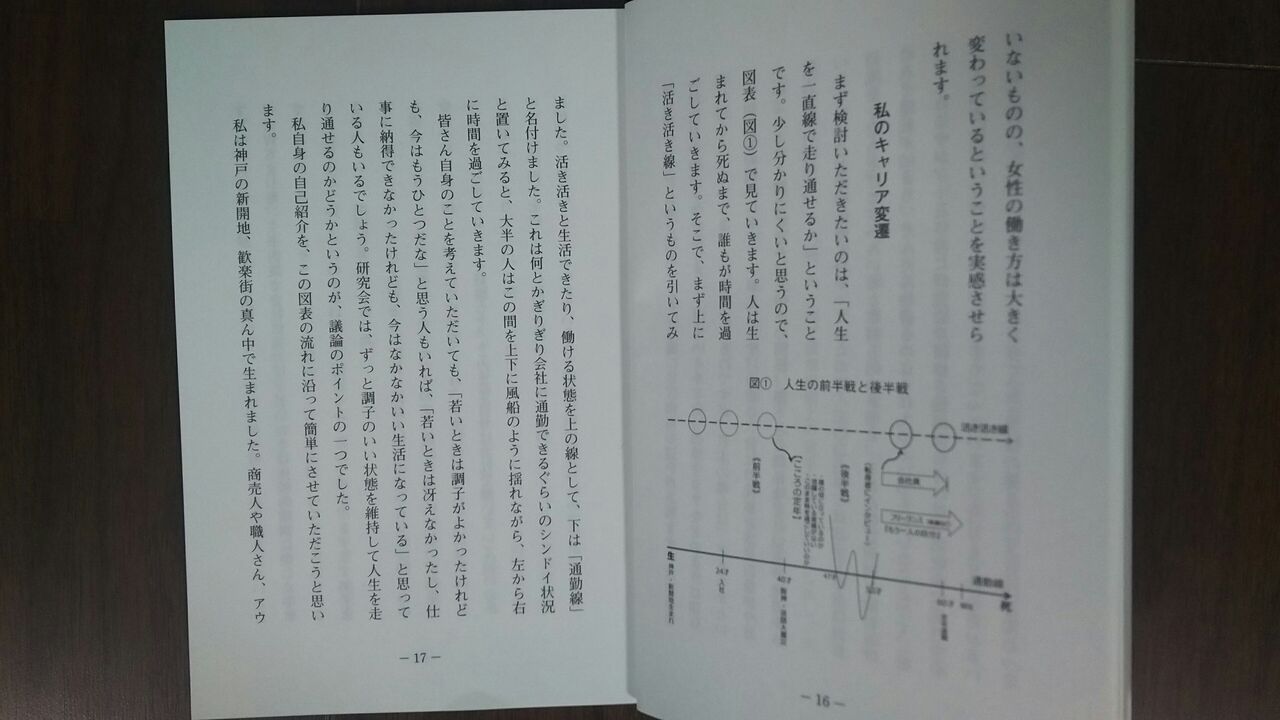 いないものの、女性の働き方は大きく
変わっているということを実感させら
れます。
私のキャリア変遷
まず検討いただきたいのは、「人生
を一直線で走り通せるか」ということ
です。少し分かりにくいと思うので、
図表(図①)で見ていきます。人は生
まれてから死ぬまで、誰もが時間を過
ごしていきます。そこで、まず上に
「活き活き線」というものを引いてみ
図① 人生の前半戦と後半戦
活き活き線
《前半戦》
【こころの定年】
《後半戦》
会社員
フリーランス
『もう一人の自分』
通勤線
生
神戸・新開地生まれ
24才
入社
40才
阪神・淡路大震災
47才
50才
60才
定年退職
死
― 16 ―
ました。活き活きと生活できたり、働ける状態を上の線として、下は「通勤線」
と名付けました。これは何とかぎりぎり会社に通勤できるぐらいのシンドイ状況
と置いてみると、大半の人はこの間を上下に風船のように揺れながら、左から右
に時間を過ごしていきます。
皆さん自身のことを考えていただいても、「若いときは調子がよかったけれど
も、今はもうひとつだな」と思う人もいれば、「若いときは冴えなかったし、仕
事に納得できなかったけれども、今はなかなかいい生活になっている」と思って
いる人もいるでしょう。研究会では、ずっと調子のいい状態を維持して人生を走
り通せるのかどうかというのが、議論のポイントの一つでした。
私自身の自己紹介を、この図表の流れに沿って簡単にさせていただこうと思い
ます。
私は神戸の新開地、歓楽街の真ん中で生まれました。商売人や職人さん、アウ
― 17 ―